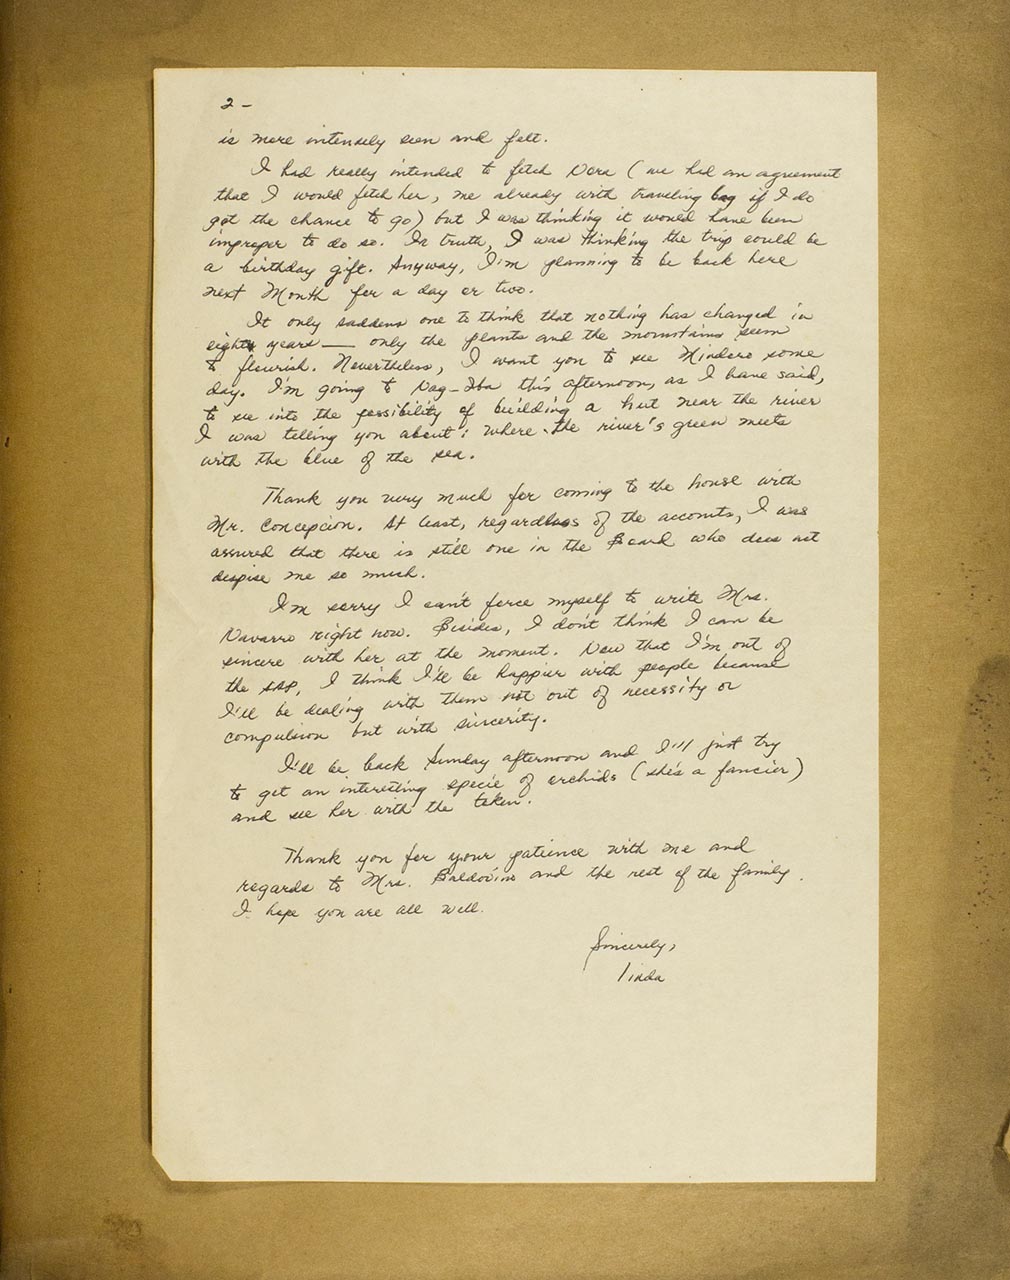 2 -
is more intensely seen and felt.
I had really intended to fetch Vera (we had an agreement
that I would fetch her, me already with traveling bag if I do
got the chance to go) but I was thinking it would have been
improper to do so. In truth, I was thinking the trip could be
a birthday gift. Anyway, I'm planning to be back here
next Month for a day or two.
It only saddens one to think that nothing has changed in
eight years — only the plants and the mountains seem
to flourish. Nevertheless, I want you to see Mindoro some
day. I'm going to Nag-Iba this afternoon, as I have said,
to see into the possibility of building a hut near the river
I was telling you about; where the river's green meets
with the blue of the sea.
Thank you very much for coming to the house with
Mr. Concepcion. At least, regardless of the accounts, I was
assured that there is still one in the Board who does not
despise me so much.
I'm sorry I can't force myself to write Mrs.
Navarro right now. Besides, I don't think I can be
sincere with her at the moment. Now that I'm out of
the SAP, I think I'll be happier with people because
I'll be dealing with them not out of necessity or
compulsion but with sincerity.
I'll be back Sunday afternoon and I'll just try
to get an interesting specie of orchids (she's a fancier)
and see her with the token.
Thank you for your patience with me and
regards to Mrs. Baldovino and the rest of the family.
I hope you are all well.
Sincerely,
linda